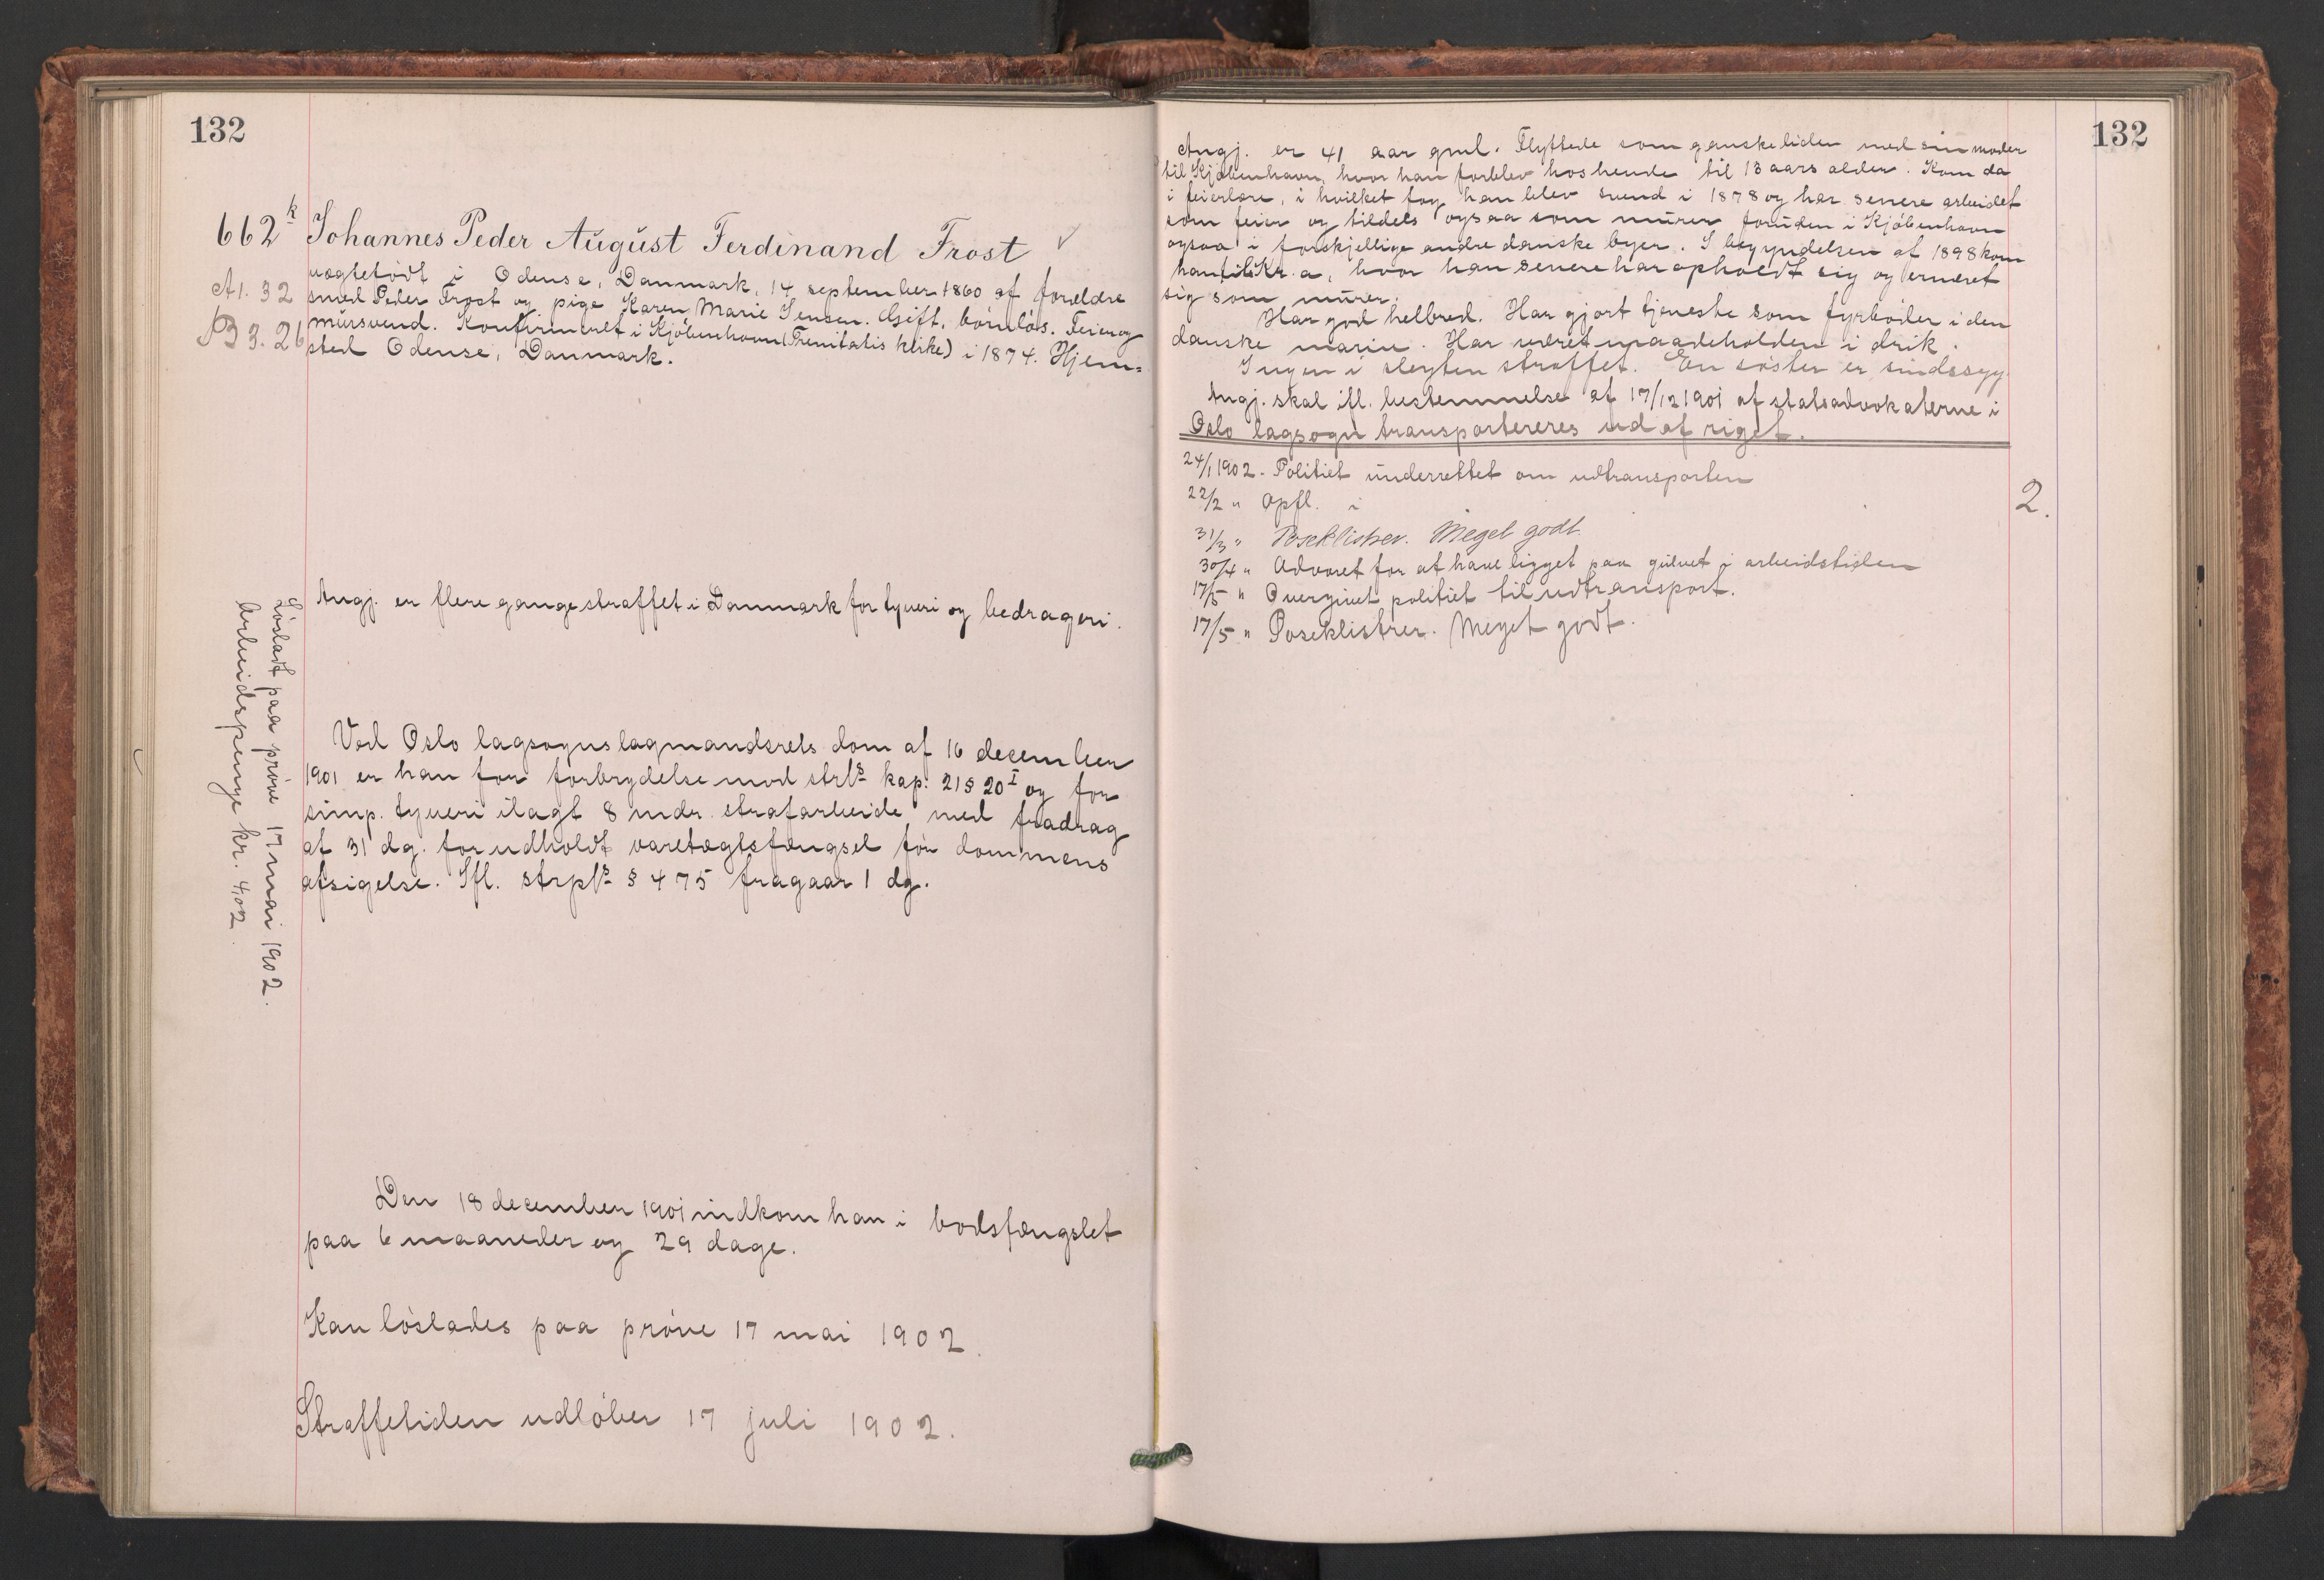 132
662 k Johannes Peder August Ferdinand Frost
A1. 32
B 3. 26
ægtefødt i Odense, Danmark, 14 september 1860 af forældre
smed Peder Frost og pige Karen Marie Jensen. Gift, børnløs. Feier og
mursvend. Konfirmeret i Kjøbenhavn (Trenitatis kirke) i 1874. Hjem=
sted Odense, Danmark.
Angj. er flere gange straffet i Danmark for tyveri og bedrageri.
Ved Oslo lagsogns lagmandsrets dom af 16 december
1901 er han for forbrydelse mod strls kap. 21 § 20 I og for
simp. tyveri ilagt 8 mdr. strafarbeide med fradrag
af 31 dg. for udholdt varetægtsfængsel før dommens
afsigelse. Ifl. strpls § 475 fragaar 1 dg.
Løsladt paa prøve 17 mai 1902.
Arbeidspenge kr. 4,02.
Den 18 december 1901 indkom han i bodsfængslet
paa 6 maaneder og 29 dage.
Kan løslades paa prøve 17 mai 1902.
Straffetiden udløber 17 juli 1902.
132
Angj. er 41 aar gml. Flyttede som ganske liden med sin moder
til Kjøbenhavn, hvor han forblev hos hende til 13 aars alder. Kom da
i feierlære, i hvilket fag han blev svend i 1878 og har senere arbeidet
som feier og tildels ogsaa som murer foruden i Kjøbenhavn
ogsaa i forskjellige andre danske byer. I begyndelsen af 1898 kom
han til Kr.a, hvor han senere har opholdt sig og ernæret
sig som murer.
Har god helbred. Har gjort tjeneste som fyrbøder i den
danske marine. Har været maadeholden i drik.
Ingen i slegten straffet. En søster er sindssyg
Angj. skal ifl. bestemmelse af 17/12 1901 af statsadvokaterne i
Oslo lagsogn transporteres ud af riget.
24/1 1902. Politiet underrettet om udtransporten
22/2 " Opfl. i 2.
31/3 " Poseklistrer. Meget godt.
30/4 " Advaret for at have ligget paa gulvet i arbeidstiden
17/5 " Overgivet politiet til udtransport.
17/5 " Poseklistrer. Meget godt.